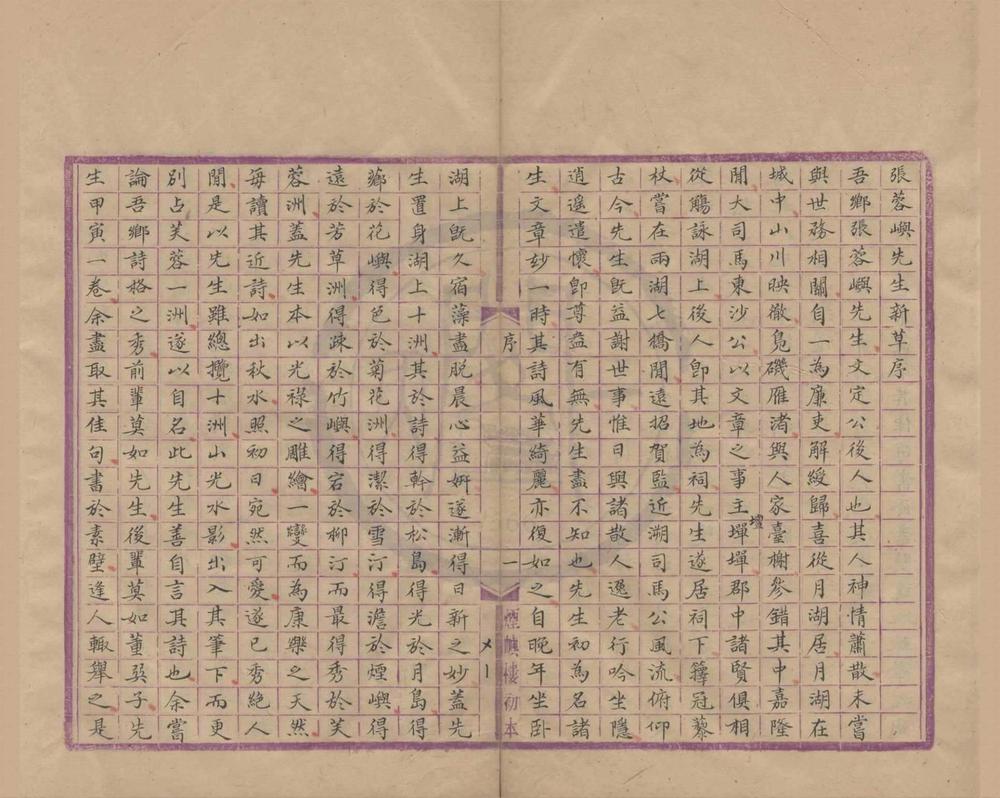 張蓉嶼先生新草序
吾鄉張蓉嶼先生文定公後人也其人神情蕭散未嘗
與世務相關自一為廉吏解綬歸喜從月湖居月湖在
城中山川映徹鳧磯雁渚與人家臺榭參錯其中嘉隆
間大司馬東沙公以文章之事主墠墠郡中諸賢俱相
壇
從觴詠湖上後人卽其地為祠先生遂居祠下籜冠藜
杖嘗在兩湖七橋間遠招賀監近溯司馬公風流俯仰
古今先生旣益謝世事惟日與諸散人逸老行吟坐隱
逍遙遣懷卽尊盎有無先生盡不知也先生初為名諸
生文章妙一時其詩風華綺麗亦復如之自晚年坐卧
序
一
煙嶼樓初本
湖上旣久宿藻盡脫晨心益妍遂漸得日新之妙蓋先
生置身湖上十洲其於詩得幹於松島得光於月島得
薌於花嶼得色於菊花洲得潔於雪汀得澹於煙嶼得
遠於芳草洲得疎於竹嶼得宕於柳汀而最得秀於芙
蓉洲蓋先生本以光祿之雕繪一變而為康樂之天然
每讀其近詩如出秋水照初日宛然可愛遂已秀絕人
間是以先生雖總攬十洲山光水影出入其筆下而更
別占芙蓉一洲遂以自名此先生善自言其詩也余嘗
論吾鄉詩格之秀前輩莫如先生後輩莫如董巽子先
生甲寅一卷余盡取其佳句書於素壁逢人輒舉之是